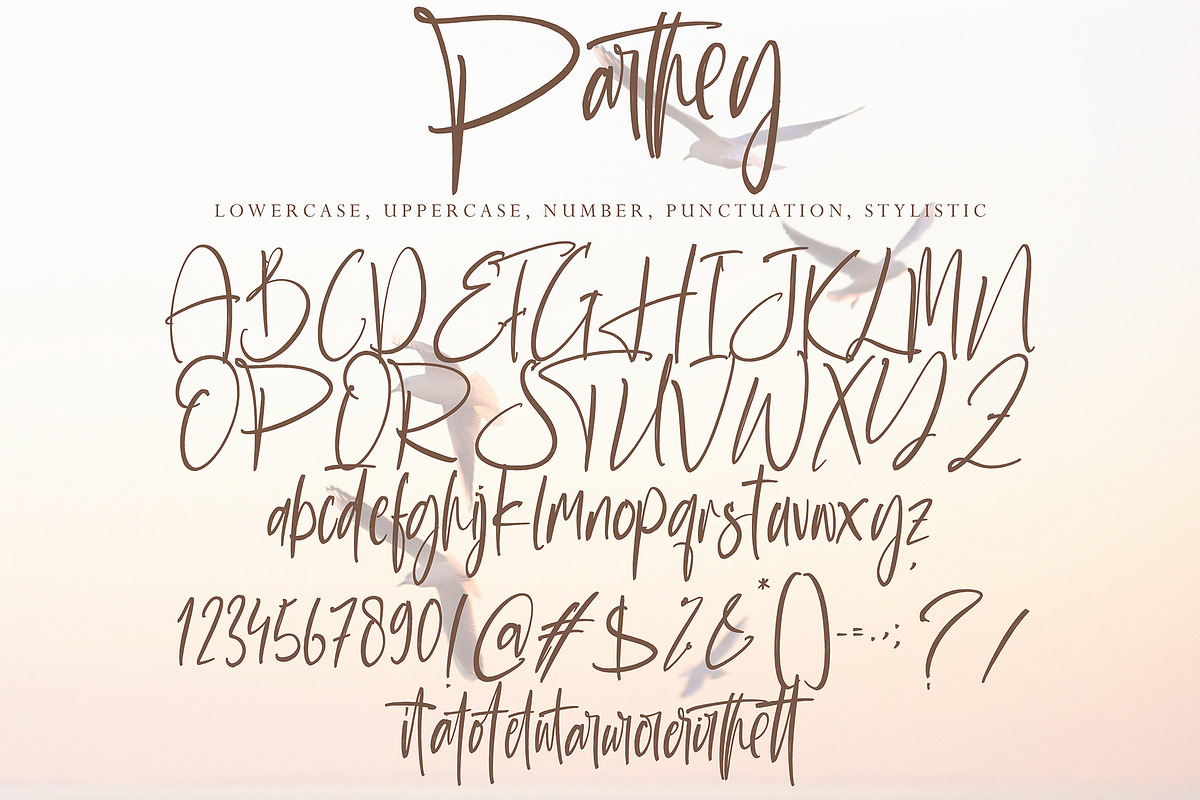 Parthey
LOWERCASE, UPPERCASE, NUMBER, PUNCTUATION, STYLISTIC
ABCDEFGHIJKLMN
OPQRSTUVWXYZ
abcdefghijklmnopqrstuvwxyz
1234567890!@#$%&*()-=.,;?/
itatotetutarurorerirthett